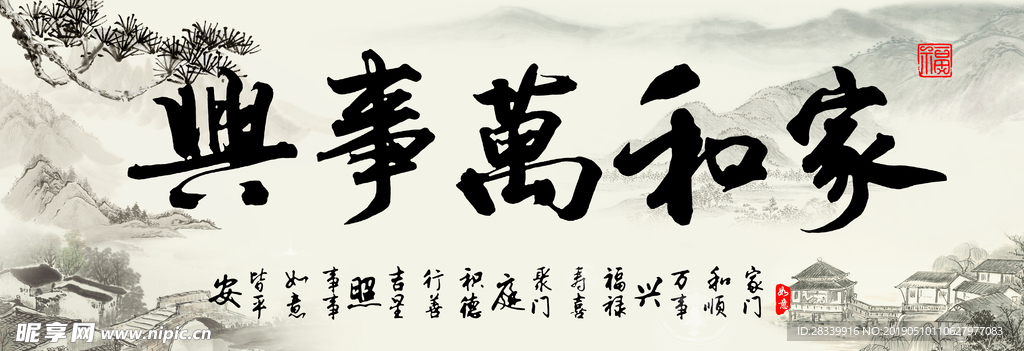 家和萬事興
福
家门和顺万事兴
福禄寿喜聚门庭
积德行善吉星照
事事如意皆平安
如意
昵享网 www.nipic.cn
ID:28339916 NO:20190510110627977083